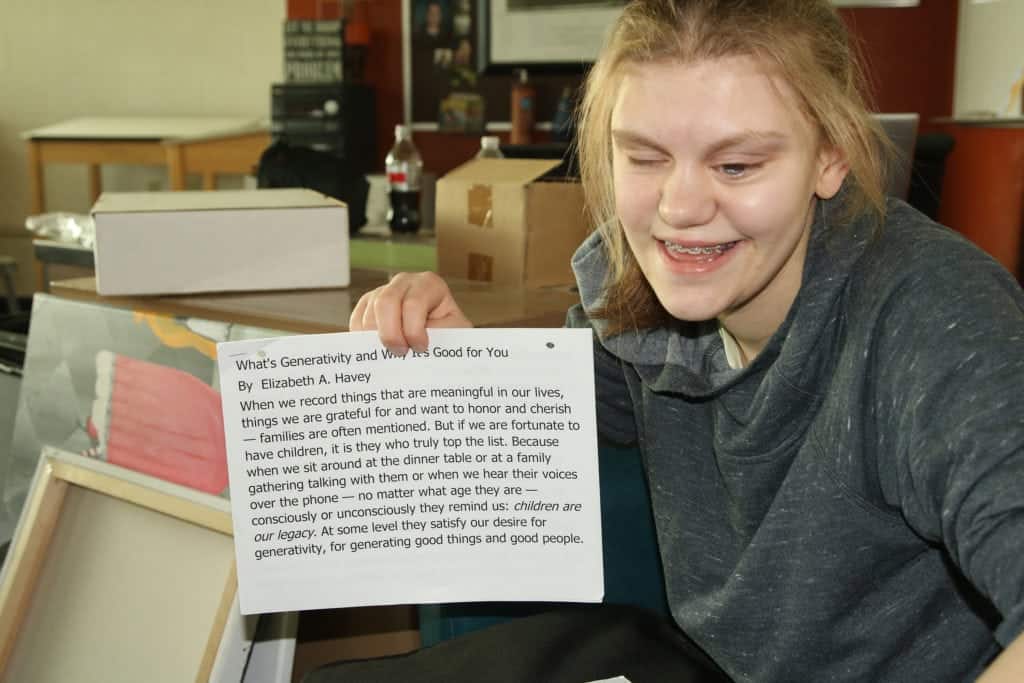 What's Generativity and Why It's Good for You
By Elizabeth A. Havey
When we record things that are meaningful in our lives,
things we are grateful for and want to honor and cherish
— families are often mentioned. But if we are fortunate to
have children, it is they who truly top the list. Because
when we sit around at the dinner table or at a family
gathering talking with them or when we hear their voices
over the phone — no matter what age they are —
consciously or unconsciously they remind us: children are
our legacy. At some level they satisfy our desire for
generativity, for generating good things and good people.